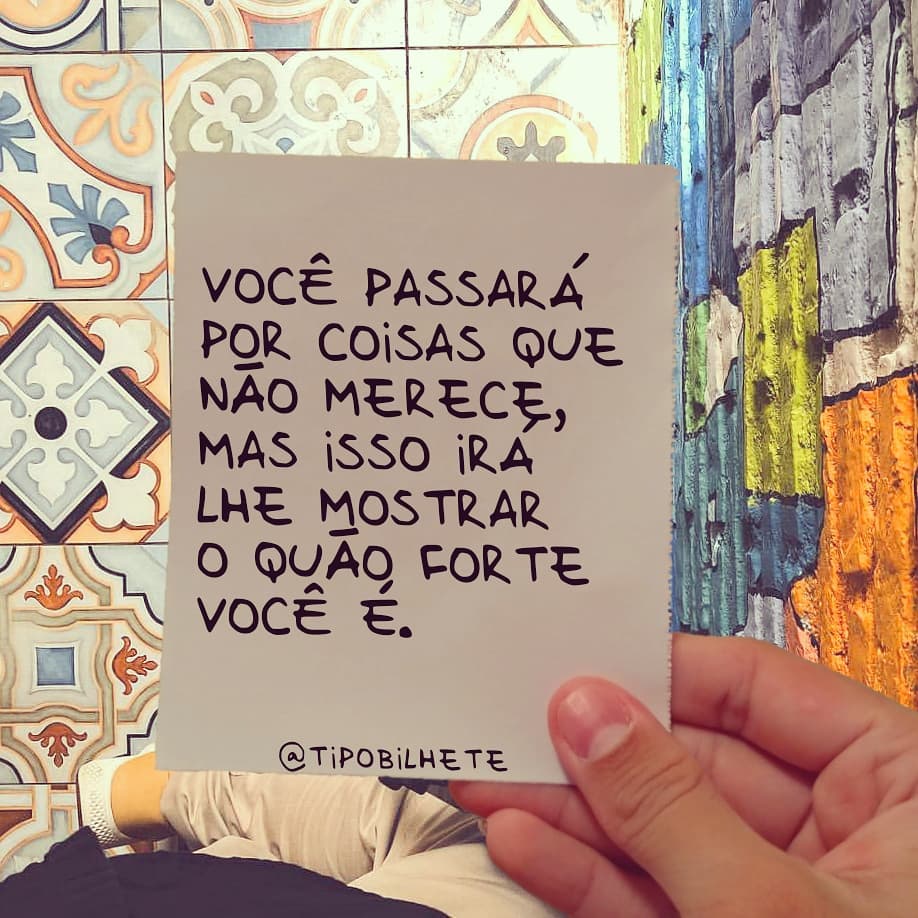 VOCÊ PASSARÁ
POR COiSAS QUE
NÃO MERECE,
MAS iSSO iRÁ
LHE MOSTRAR
O QUÃO FORTE
VOCÊ É.
@TiPOBiLHETE